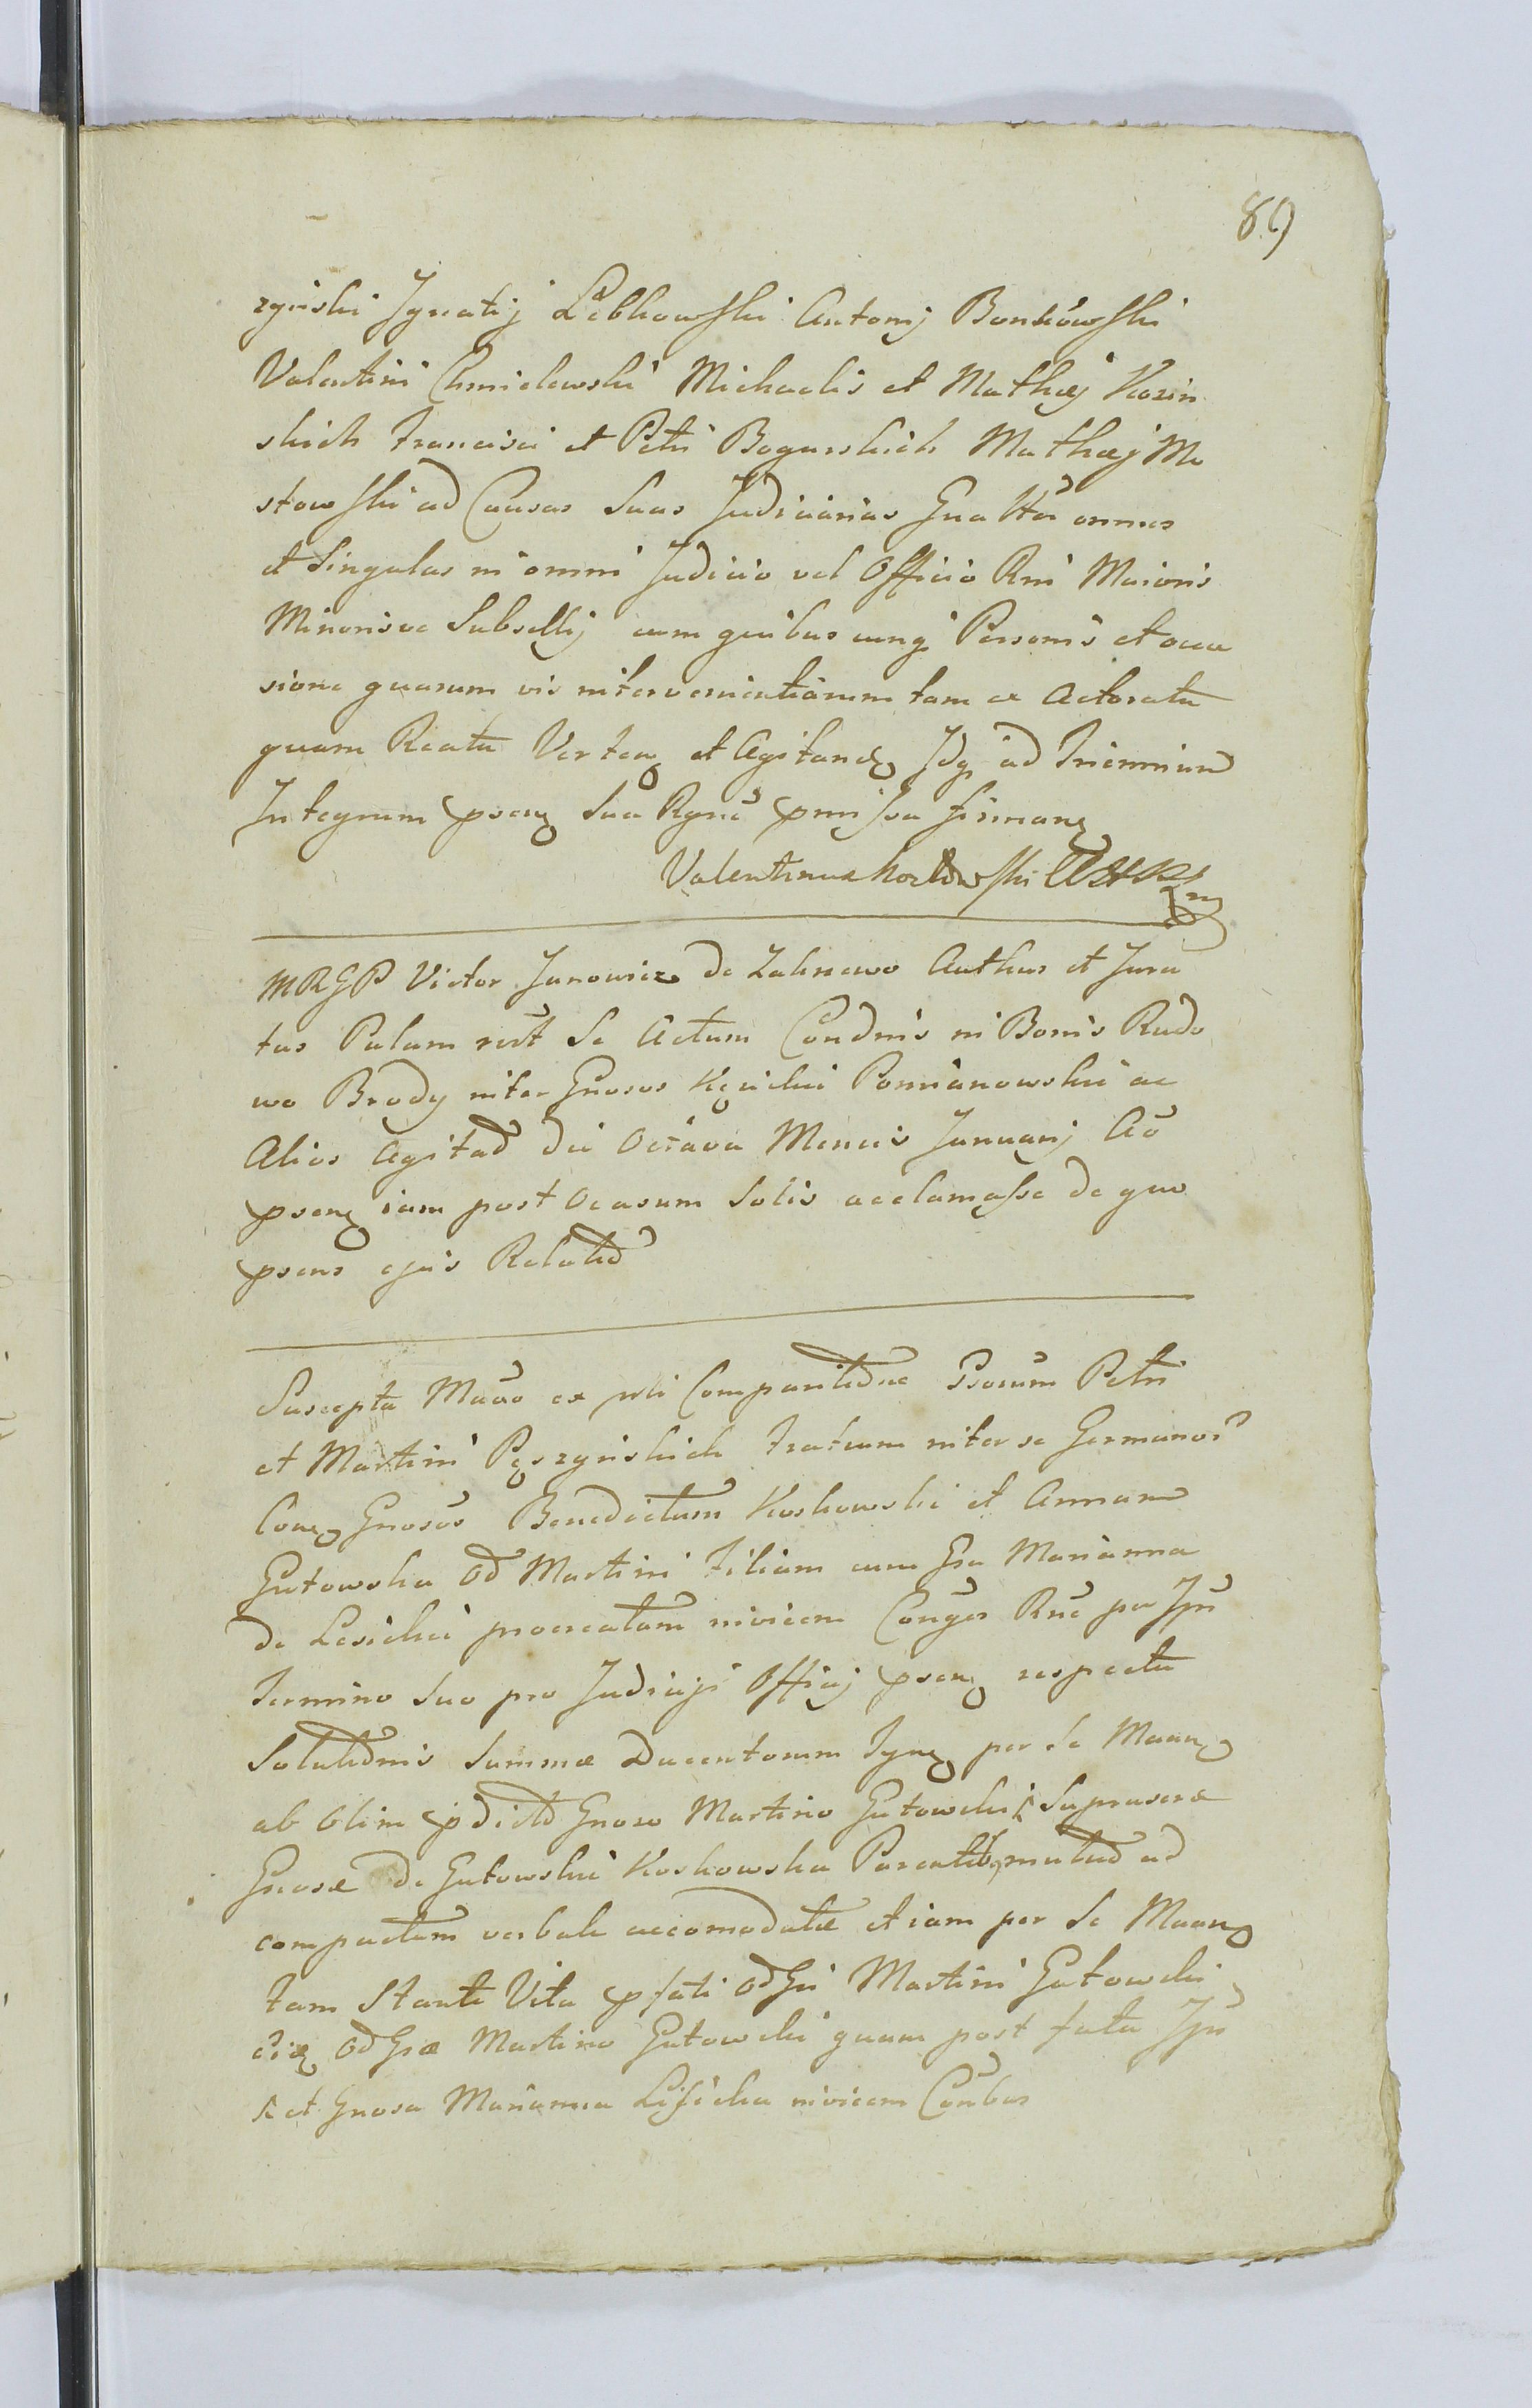 89
zynski Jgnatij Lebkowski Antonij Bonkowski
Valentini Chmielewski Michaelis et Mathæj Kozin
skich Francisci et Petri Bogurskich Mathæj Mo
stowski ad Causas Suas Judiciarias Gnaliter omnes
et Singulas in omni Judicio vel Officio Rni Maioris
Minorisve Subsellij cum quibus cunq Personis et occa
sione quarum vis intervenientiarum tam ex Actoratu
quam Reatu Verten et Agitand Jdq ad Triennium
Integrum psen Sua Rgnê pmissa firman
Valentinus
MRGP Victor Janowicz de Zalesiewo Authus et Jura
tus Palam reclt Se Actum Condnis in Bonis Rudo
wo Brody inter Gnosos Kęsicki Pomianowski ac
Alios Agitad die Octava Mensis Januarij Aõ
psen iam post Ocasum Solis acclamasse de quo
psens ejus Relatio
Suscepta Maõo ex pti Comparitione Gsorum Petri
et Martini Pęszynskich Fratrum inter se Germanor
Con Gnosos Benedictum Koskowski et Annam
Gutowska Od Martini Filiam cum Gsa Marianna
de Lesicki procreatam invicem Conges Rnê per Jps
Termino Suo pro Judicijs Officij psen respectu
Solutionis Summæ Ducentorum Tyn per Se Maan
ab Olim pdicto Gnoso Martino Gutowski Suprascræ
Gnosæ De Gutowski Koskowska Parente mutuo ad
compactum verbale accomodatæ et iam per Se Maan
tam Stante Vita pfati Od Gsi Martini Gutowski
Od Gsæ Martino Gutowski quam post fata Jps
et Gnosa Marianna Lisicka invicem Conbus